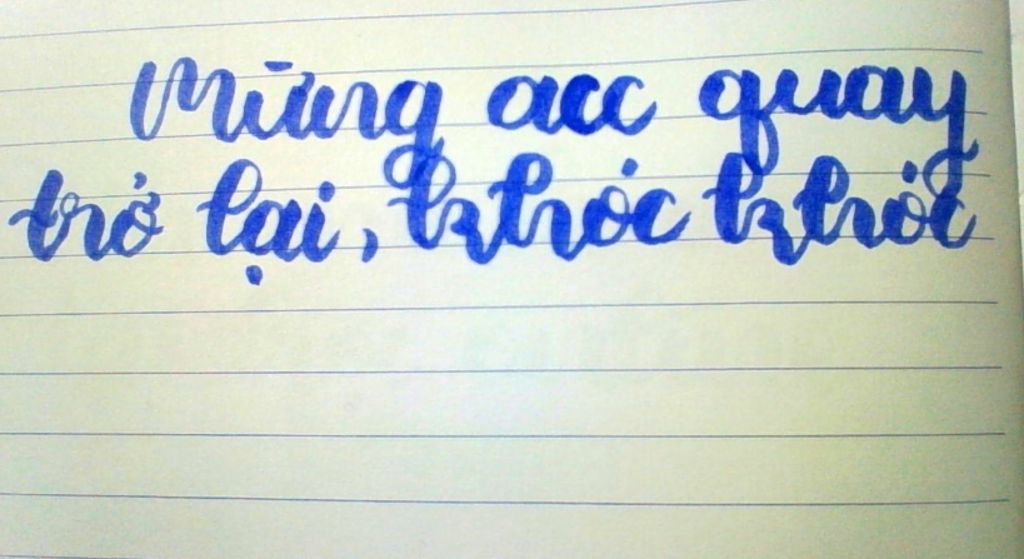 Mừng acc quay
trở lại, khóc khóc